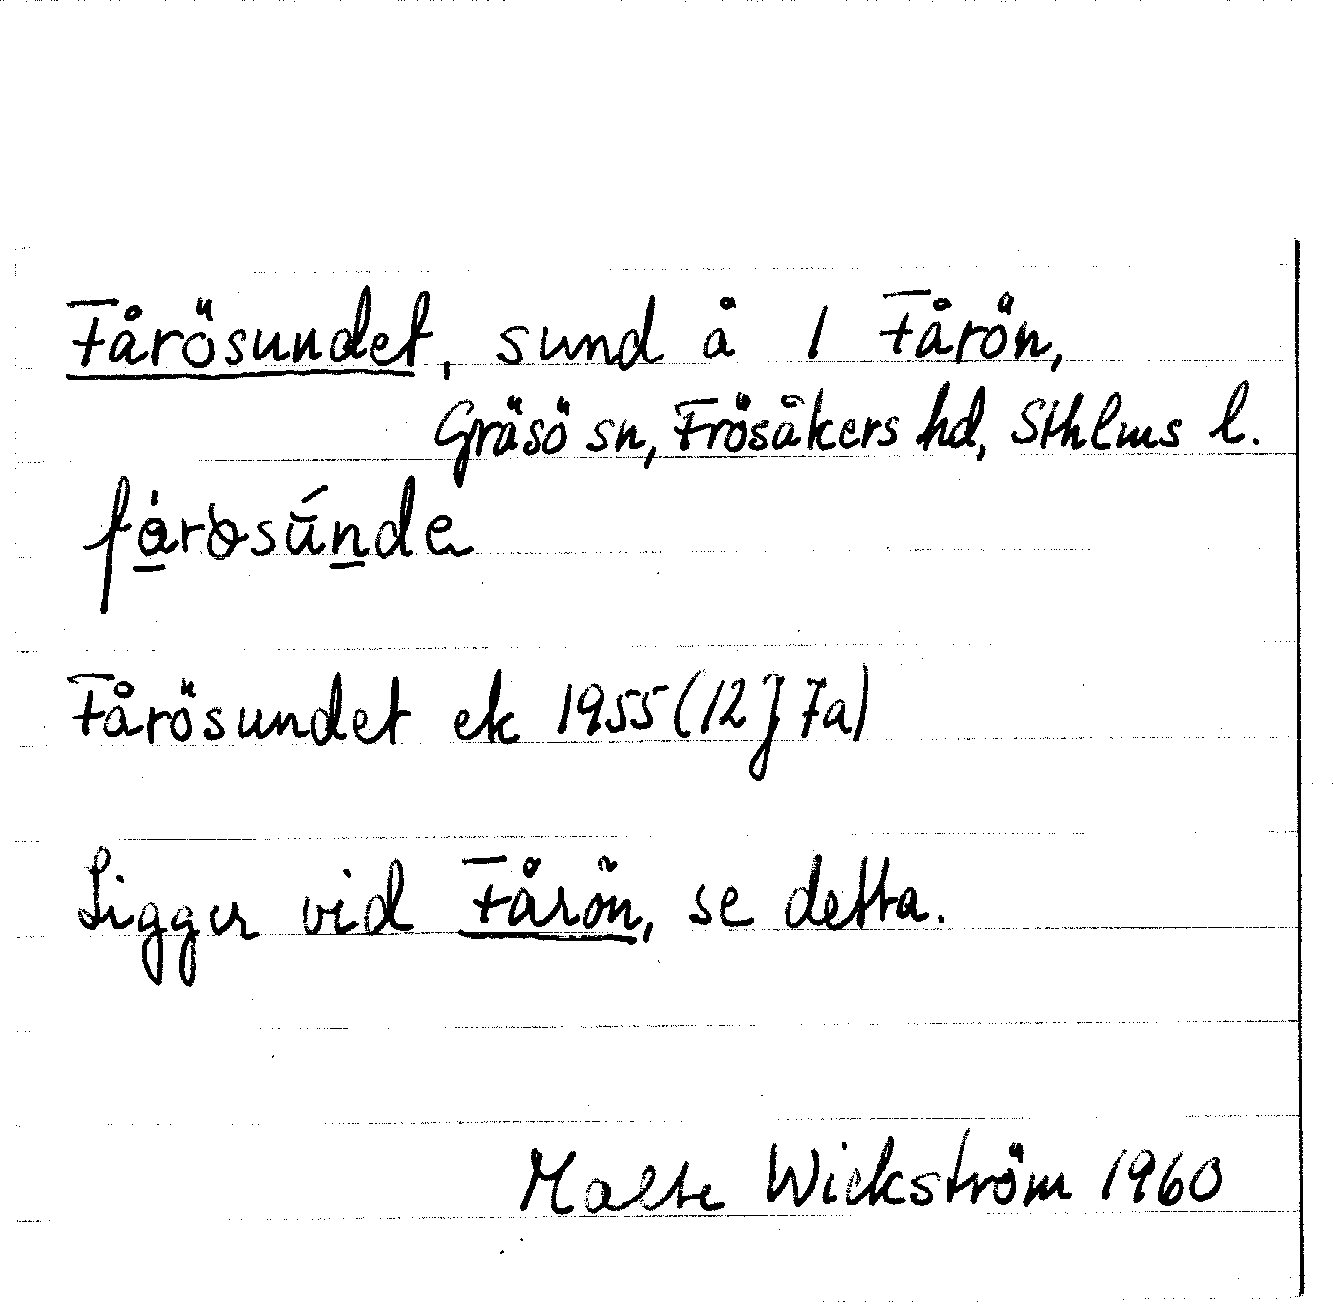 Fårösundet, sund å 1 Fårön,
Gräsö sn, Frösåkers hd, Sthlms l.
Fårösundet ek 1955 (12 J 7a)
Ligger vid Fårön, se detta.
Malte Wickström 1960